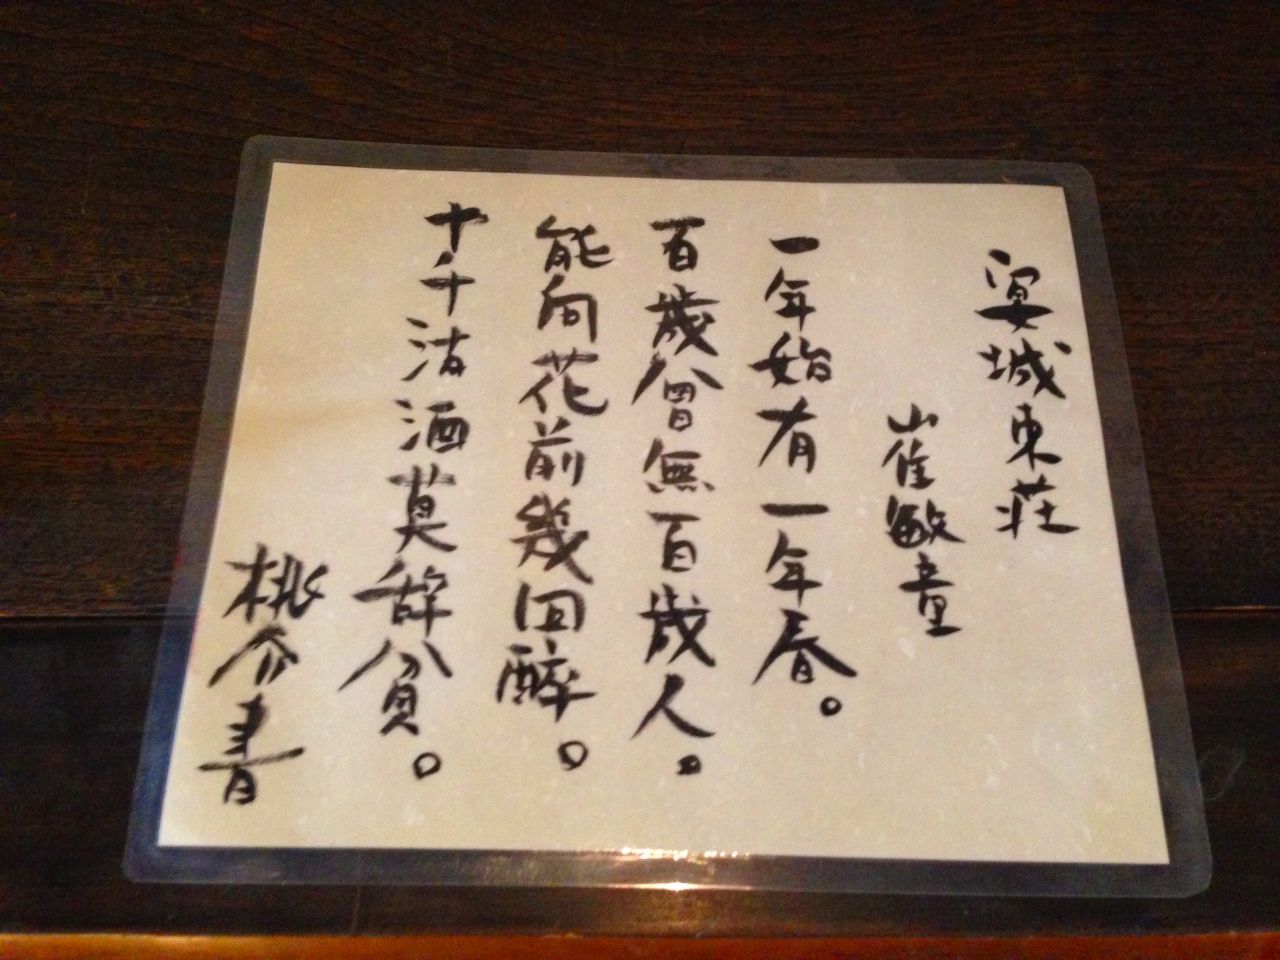 宴城東荘
崔敏童
一年始有一年春。
百歳曾無百歳人。
能向花前幾回酔。
十千沽酒莫辞貧。
桃介書